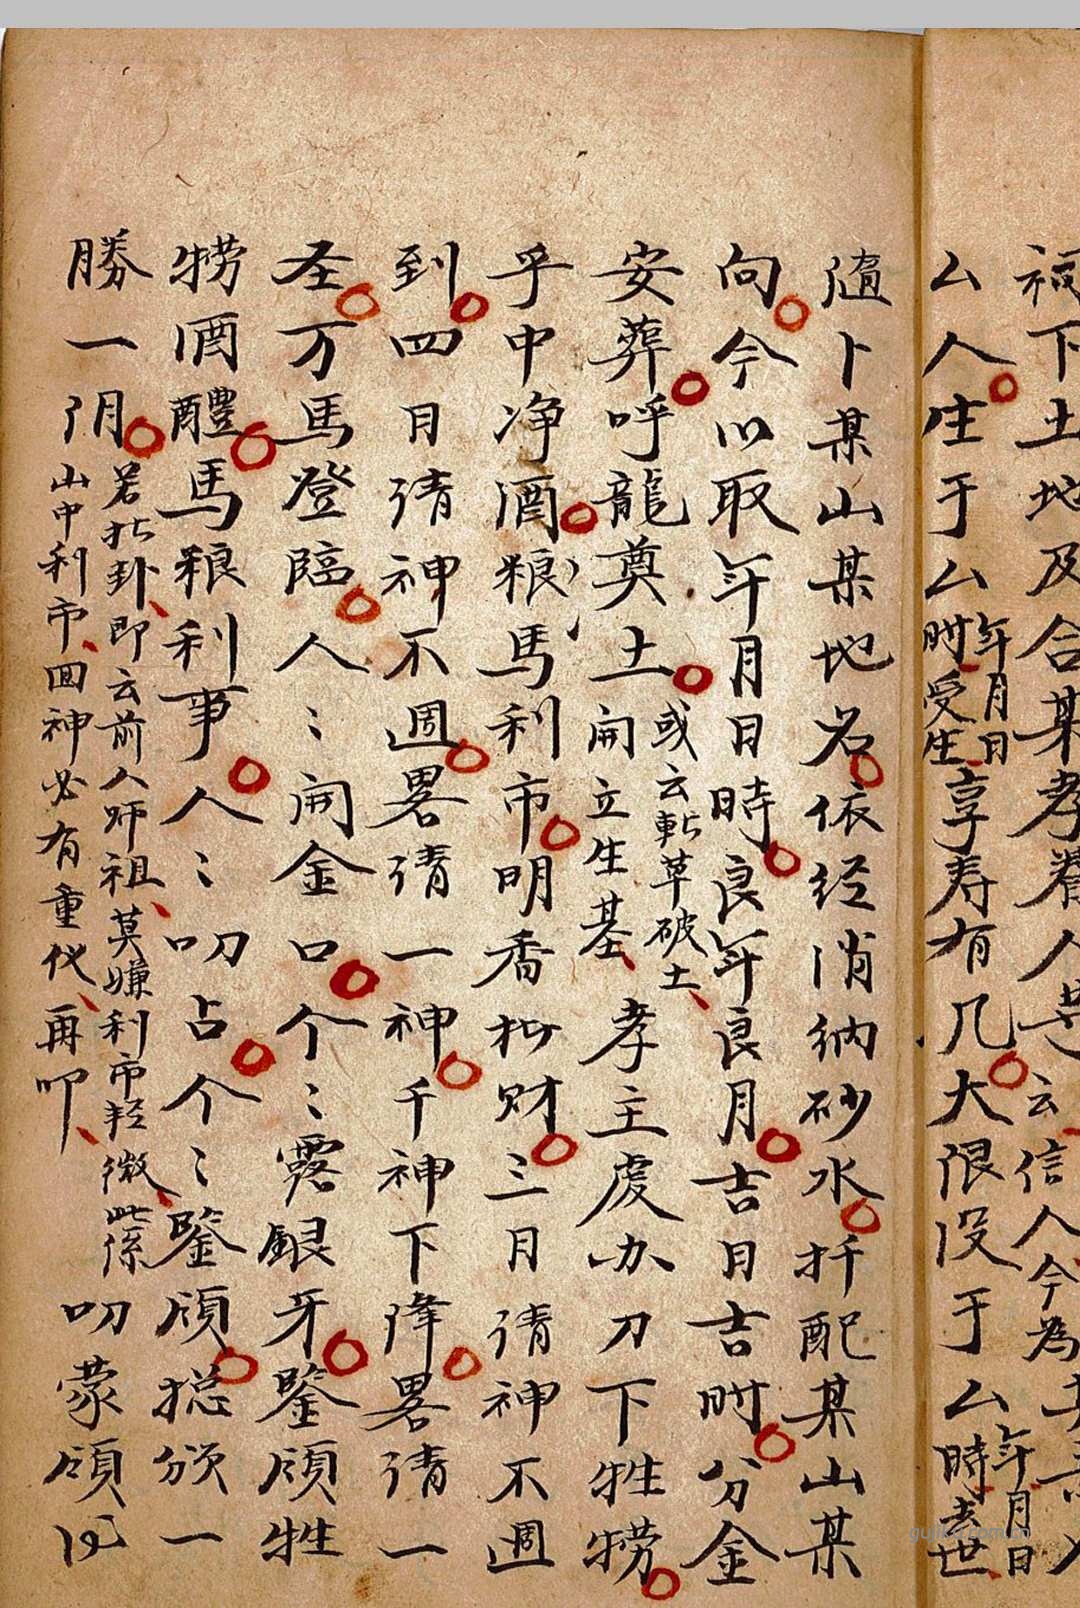 祠下土地及合某孝眷人艹云信人今為
厶人生于厶年月日時受生享寿有几大限没于厶年月日時去世
随卜某山某地名依经消纳砂水扦配某山某
向今以取年月日時良年良月吉日吉时分金
安葬呼龍奠土或云斬草破土開立生基孝主虔办刀下牲㹎
乎中净酒粮馬利市明香杩财三月请神不週
到四月请神不週畧请一神千神下降畧请一
圣万馬登臨人〻開金口个〻露銀牙鑒領牲
㹎酒醴馬粮利事人〻叨占个〻鑒領捴颁一
勝一阴若非卦即云前人师祖莫嫌利市轻微此係山中利市回神必有重伩再叩叨蒙領
guji.com.cn